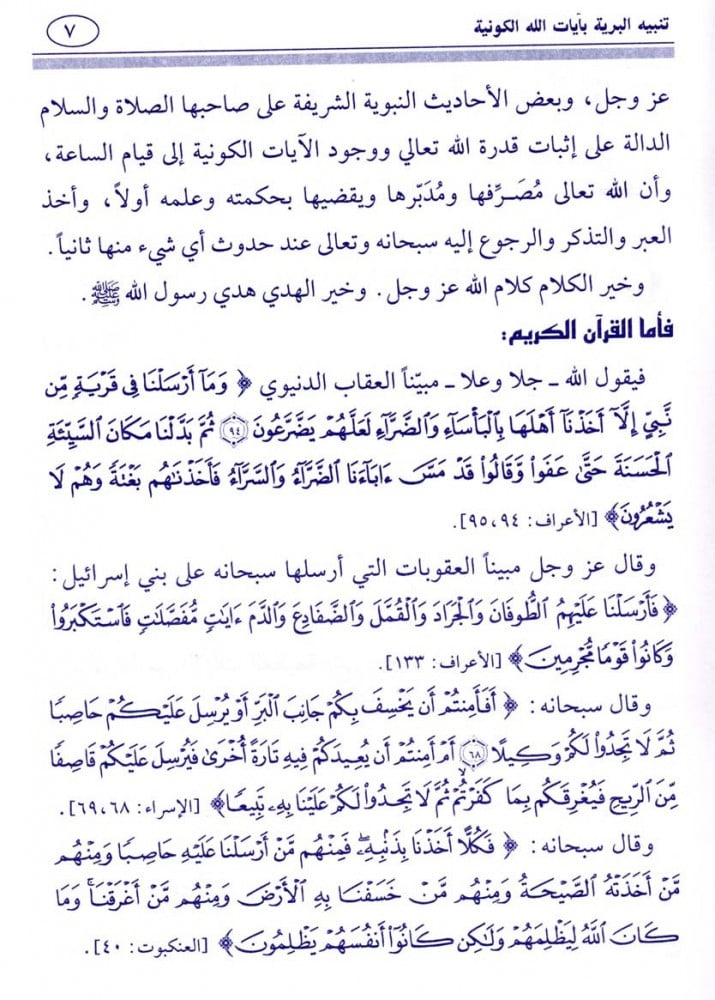 تنبيه البرية بآيات الله الكونية
٧
عز وجل، وبعض الأحاديث النبوية الشريفة على صاحبها الصلاة والسلام
الدالة على إثبات قدرة الله تعالي ووجود الآيات الكونية إلى قيام الساعة،
وأن الله تعالى مُصَـرِّفها ومُدَبّرها ويقضيها بحكمته وعلمه أولاً، وأخذ
العبر والتذكر والرجوع إليه سبحانه وتعالى عند حدوث أي شيء منها ثانياً.
وخير الكلام كلام الله عز وجل. وخير الهدي هدي رسول الله ﷺ.
فأما القرآن الكريم:
فيقول الله ـ جلا وعلا ـ مبيّناً العقاب الدنيوي ﴿ وَمَآ أَرْسَلْنَا فِى قَرْيَةٍ مِّن
نَّبِىٍّ إِلَّآ أَخَذْنَآ أَهْلَهَا بِٱلْبَأْسَآءِ وَٱلضَّرَّآءِ لَعَلَّهُمْ يَضَّرَّعُونَ ٩٤ ثُمَّ بَدَّلْنَا مَكَانَ ٱلسَّيِّئَةِ
ٱلْحَسَنَةَ حَتَّىٰ عَفَوا۟ وَّقَالُوا۟ قَدْ مَسَّ ءَابَآءَنَا ٱلضَّرَّآءُ وَٱلسَّرَّآءُ فَأَخَذْنَٰهُم بَغْتَةً وَهُمْ لَا
يَشْعُرُونَ﴾ [الأعراف: ٩٤، ٩٥].
وقال عز وجل مبيناً العقوبات التي أرسلها سبحانه على بني إسرائيل:
﴿ فَأَرْسَلْنَا عَلَيْهِمُ ٱلطُّوفَانَ وَٱلْجَرَادَ وَٱلْقُمَّلَ وَٱلضَّفَادِعَ وَٱلدَّمَ ءَايَٰتٍ مُّفَصَّلَٰتٍ فَٱسْتَكْبَرُوا۟
وَكَانُوا۟ قَوْمًا مُّجْرِمِينَ﴾ [الأعراف: ١٣٣].
وقال سبحانه: ﴿ أَفَأَمِنتُمْ أَن يَخْسِفَ بِكُمْ جَانِبَ ٱلْبَرِّ أَوْ يُرْسِلَ عَلَيْكُمْ حَاصِبًا
ثُمَّ لَا تَجِدُوا۟ لَكُمْ وَكِيلًا ٦٨ أَمْ أَمِنتُمْ أَن يُعِيدَكُمْ فِيهِ تَارَةً أُخْرَىٰ فَيُرْسِلَ عَلَيْكُمْ قَاصِفًا
مِّنَ ٱلرِّيحِ فَيُغْرِقَكُم بِمَا كَفَرْتُمْ ثُمَّ لَا تَجِدُوا۟ لَكُمْ عَلَيْنَا بِهِۦ تَبِيعًا﴾ [الإسراء: ٦٨، ٦٩].
وقال سبحانه: ﴿ فَكُلًّا أَخَذْنَا بِذَنۢبِهِۦ فَمِنْهُم مَّنْ أَرْسَلْنَا عَلَيْهِ حَاصِبًا وَمِنْهُم
مَّنْ أَخَذَتْهُ ٱلصَّيْحَةُ وَمِنْهُم مَّنْ خَسَفْنَا بِهِ ٱلْأَرْضَ وَمِنْهُم مَّنْ أَغْرَقْنَا ۚ وَمَا
كَانَ ٱللَّهُ لِيَظْلِمَهُمْ وَلَٰكِن كَانُوٓا۟ أَنفُسَهُمْ يَظْلِمُونَ﴾ [العنكبوت: ٤٠].